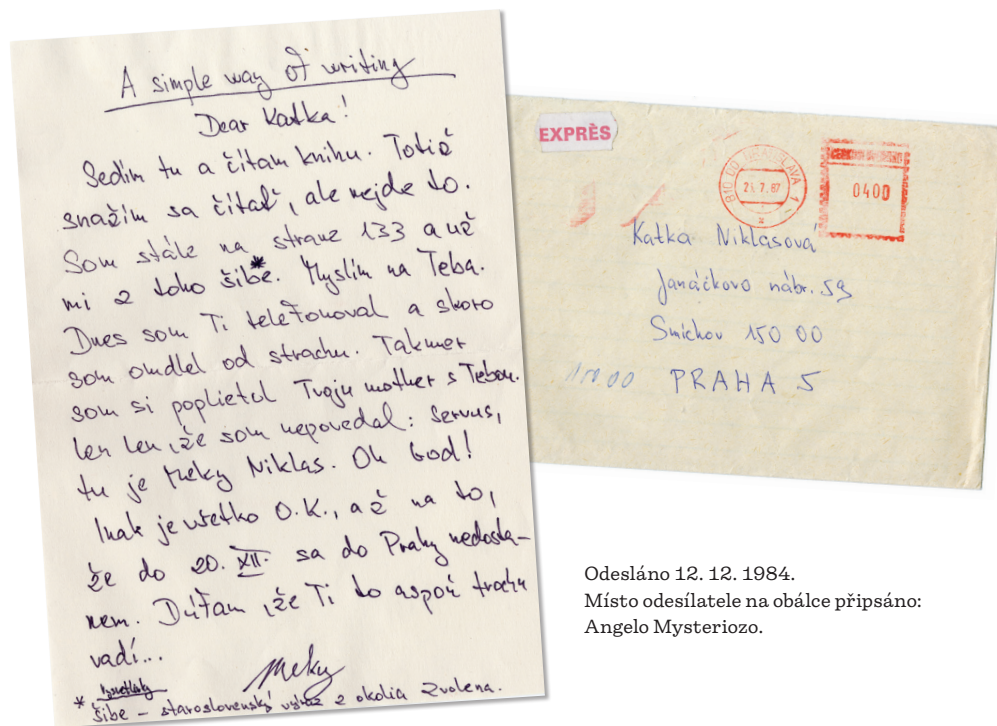 A simple way of writing
Dear Katka!
Sedím tu a čítam knihu. Totiž
snažím sa čítať, ale nejde to.
Som stále na strane 133 a už
mi z toho šibe*. Myslím na Teba.
Dnes som Ti telefonoval a skoro
som omdlel od strachu. Takmer
som si poplietol Tvoju mother s Tebou.
Len len, že som nepovedal: Servus,
tu je Meky Niklas. Oh God!
Inak je všetko O.K., až na to,
že do 20. XII. sa do Prahy nedosta-
nem. Dúfam, že Ti to aspoň trochu
vadí...
Meky
* šibe – staroslovenský výraz z okolia Zvolena.
EXPRÈS
810 00 BRATISLAVA 1
21.7.87
0400
Katka Niklasová
Janáčkovo nábr. 59
Smíchov 150 00
PRAHA 5
Odesláno 12. 12. 1984.
Místo odesílatele na obálce připsáno:
Angelo Mysteriozo.